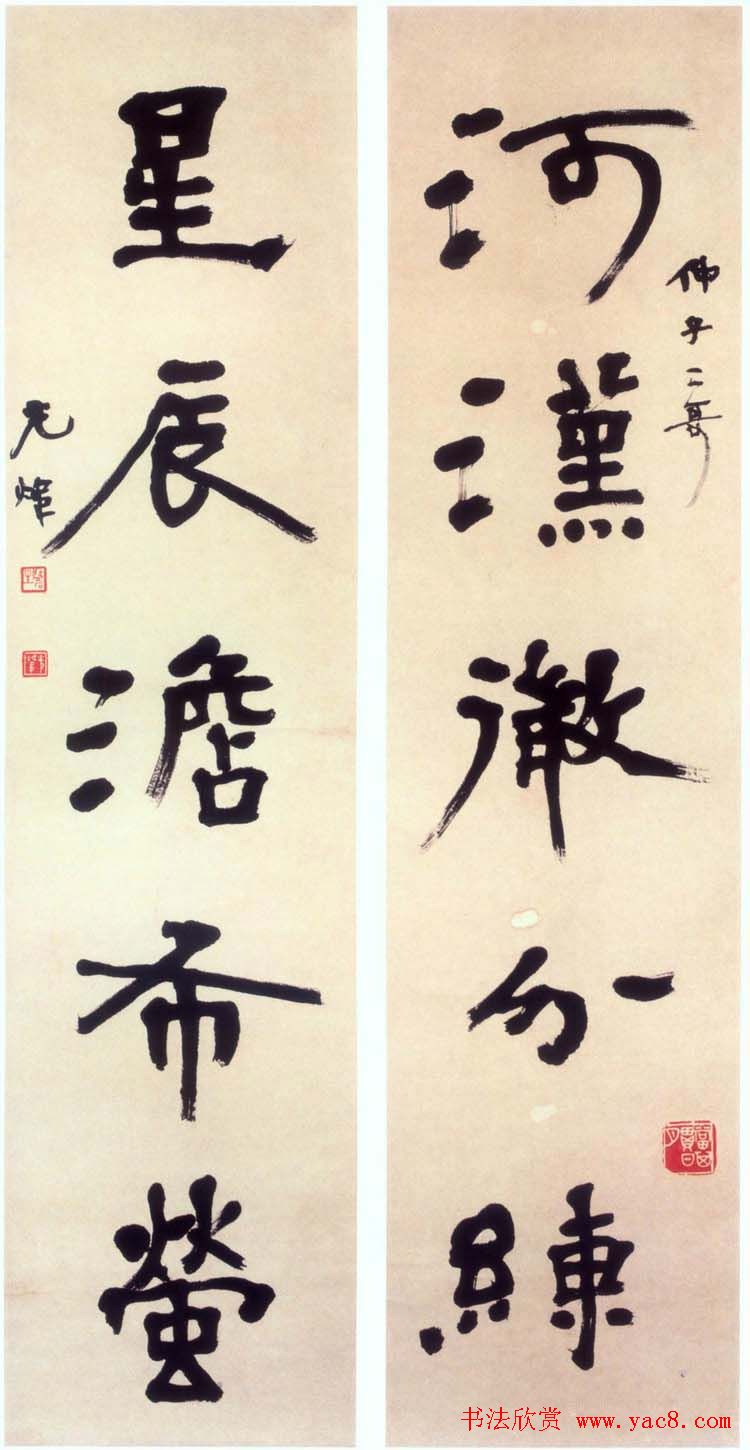 河漢微分練
仲子二
星辰澹布螢
光煒
书法欣赏 www.yac8.com